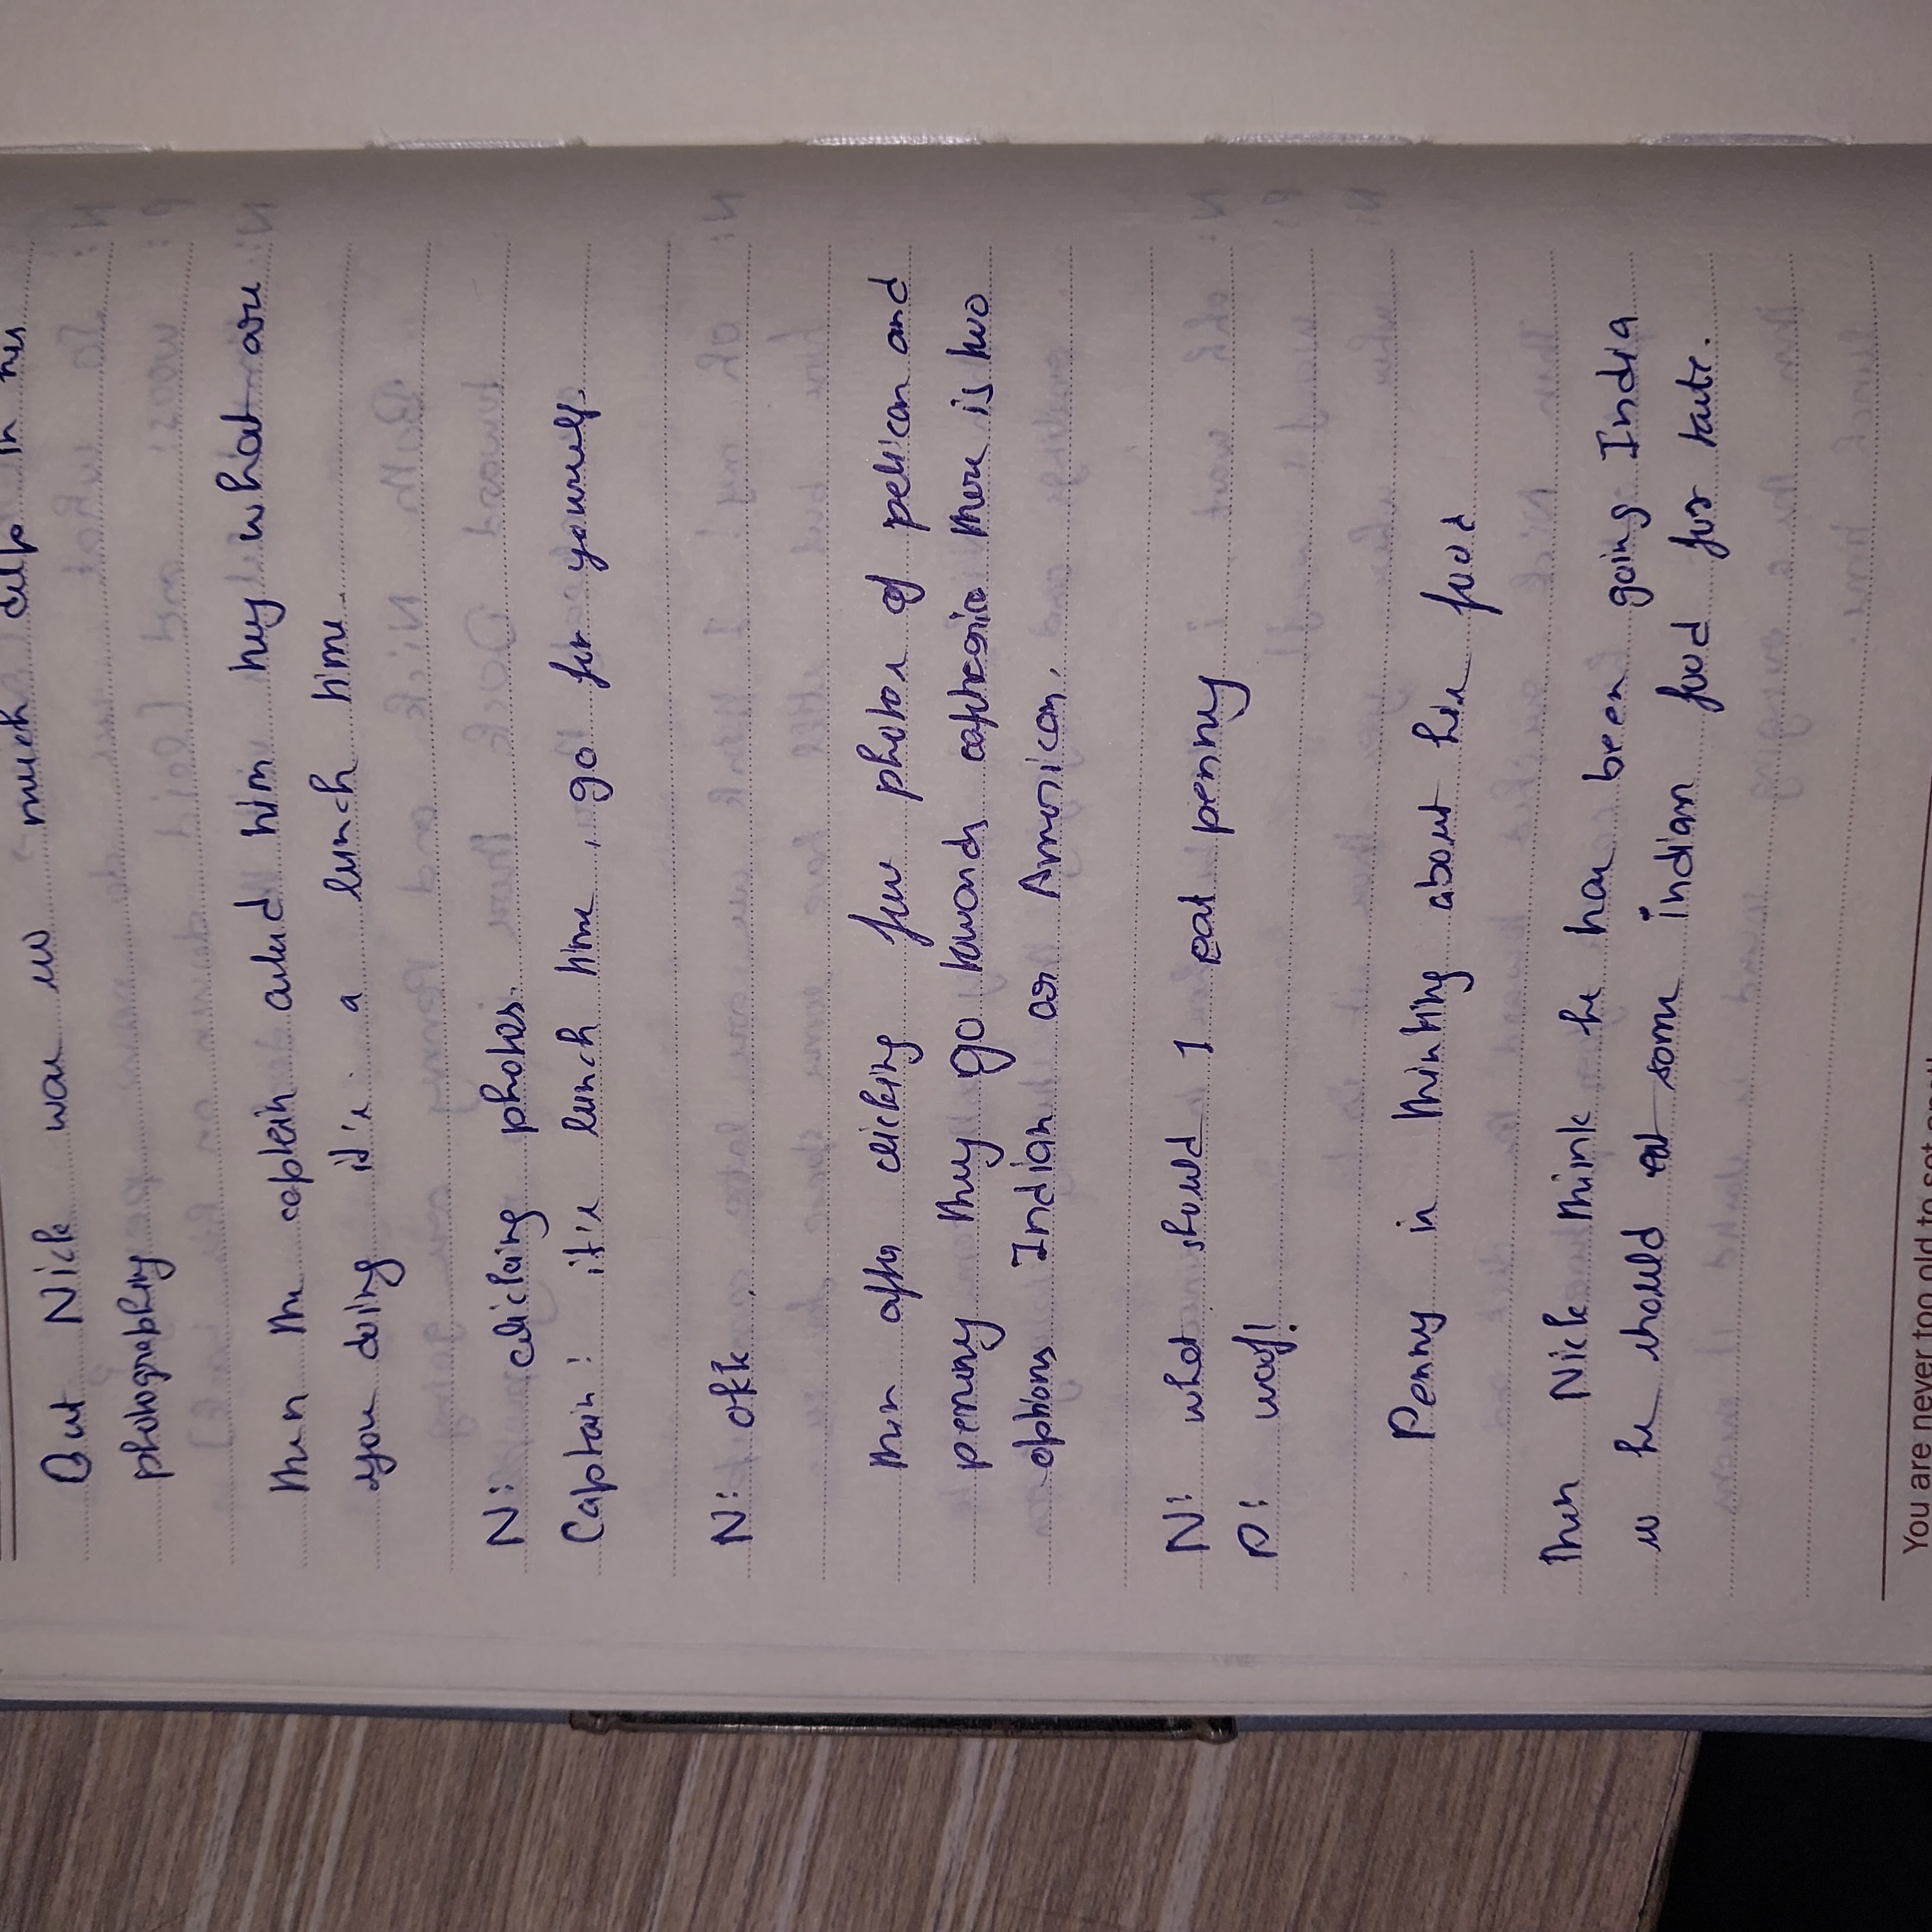 But Nick was so much deep in his
photographing
then the captain asked him hey what are
you doing it's a lunch time.
N: clicking photos.
Captain: it's lunch time, go for yourself.
N: okk.
then after clicking few photos of pelican and
penny they go towards there is two
options Indian or American.
N: what should I eat penny
P: woof!
Penny is thinking about his food
then Nick think he has been going India
so he should eat some indian food for taste.
You are never too old to set